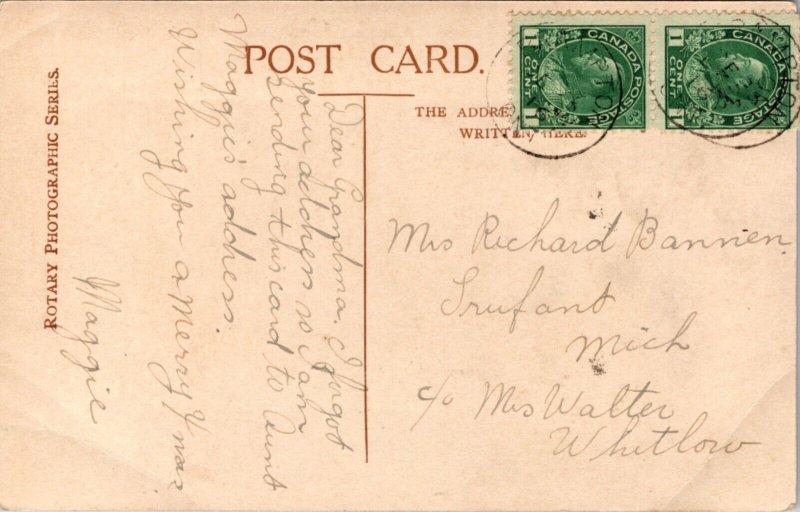 POST CARD.
THE ADDRE
WRITTEN HERE.
ROTARY PHOTOGRAPHIC SERIES.
CANADA POSTAGE
1 ONE CENT 1
CANADA POSTAGE
1 ONE CENT 1
Dear Grandma. I forgot
your address so I am
sending this card to Aunt
Maggie's address.
Wishing you a Merry Xmas
Maggie
Mrs Richard Bannen
Trufant
Mich
c/o Mrs Walter
Whitlow